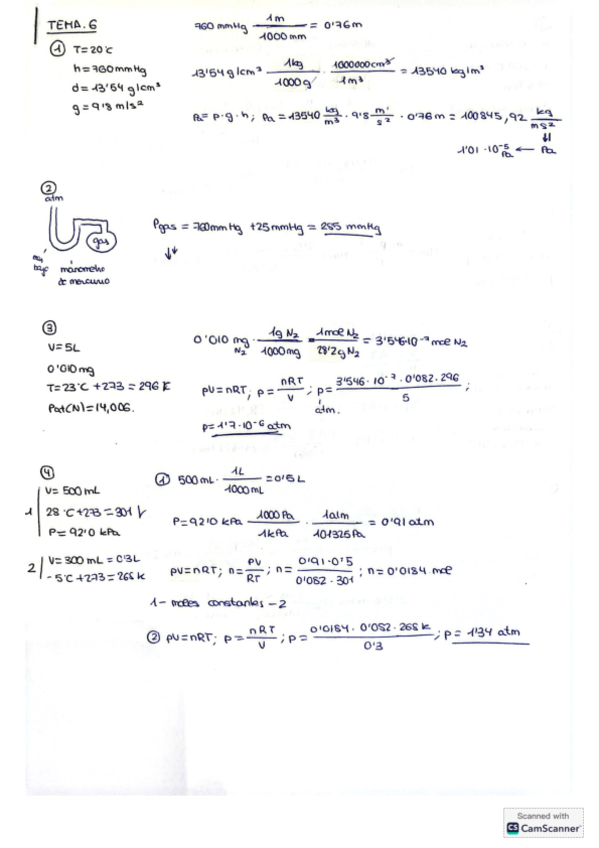 TEMA. 6
760 mmHg · 1m / 1000 mm = 0'76 m
① T = 20°C
h = 760 mmHg
d = 13'54 g/cm³
g = 9'8 m/s²
13'54 g/cm³ · 1kg / 1000 g · 1000000 cm³ / 1 m³ = 13540 kg/m³
Pa = P·g·h; Pa = 13540 kg/m³ · 9'8 m/s² · 0'76 m = 100845,92 kg/ms²
⇓
1'01 · 10⁻⁵ Pa ← Pa
②
atm
gas
manómetro
de mercurio
Pgas = 760 mmHg + 25 mmHg = 285 mmHg
③
V = 5L
0'010 mg
T = 23°C + 273 = 296 K
Pat(N) = 14,006.
0'010 mg N₂ · 1g N₂ / 1000 mg · 1 mol N₂ / 28'2g N₂ = 3'546·10⁻⁷ mol N₂
pV = nRT, p = nRT / V; p = 3'546 · 10⁻⁷ · 0'082 · 296 / 5;
atm.
p = 1'7 · 10⁻⁶ atm
④
1
V = 500 mL
28°C + 273 = 301 K
P = 92'0 kPa
2
V = 300 mL = 0'3L
-5°C + 273 = 268 K
① 500 mL · 1L / 1000 mL = 0'5 L
P = 92'0 kPa · 1000 Pa / 1 kPa · 1 atm / 101325 Pa = 0'91 atm
pV = nRT; n = PV / RT; n = 0'91 · 0'5 / 0'082 · 301; n = 0'0184 mol
1 - moles constantes - 2
② pV = nRT; p = nRT / V; p = 0'0184 · 0'082 · 268 K / 0'3; p = 1'34 atm
Scanned with
CS CamScanner